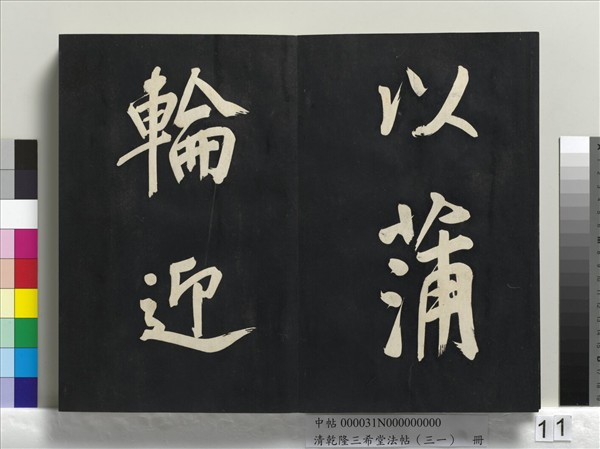 以蒲
輪迎
中帖 000031N000000000
清乾隆三希堂法帖（三一） 冊
11